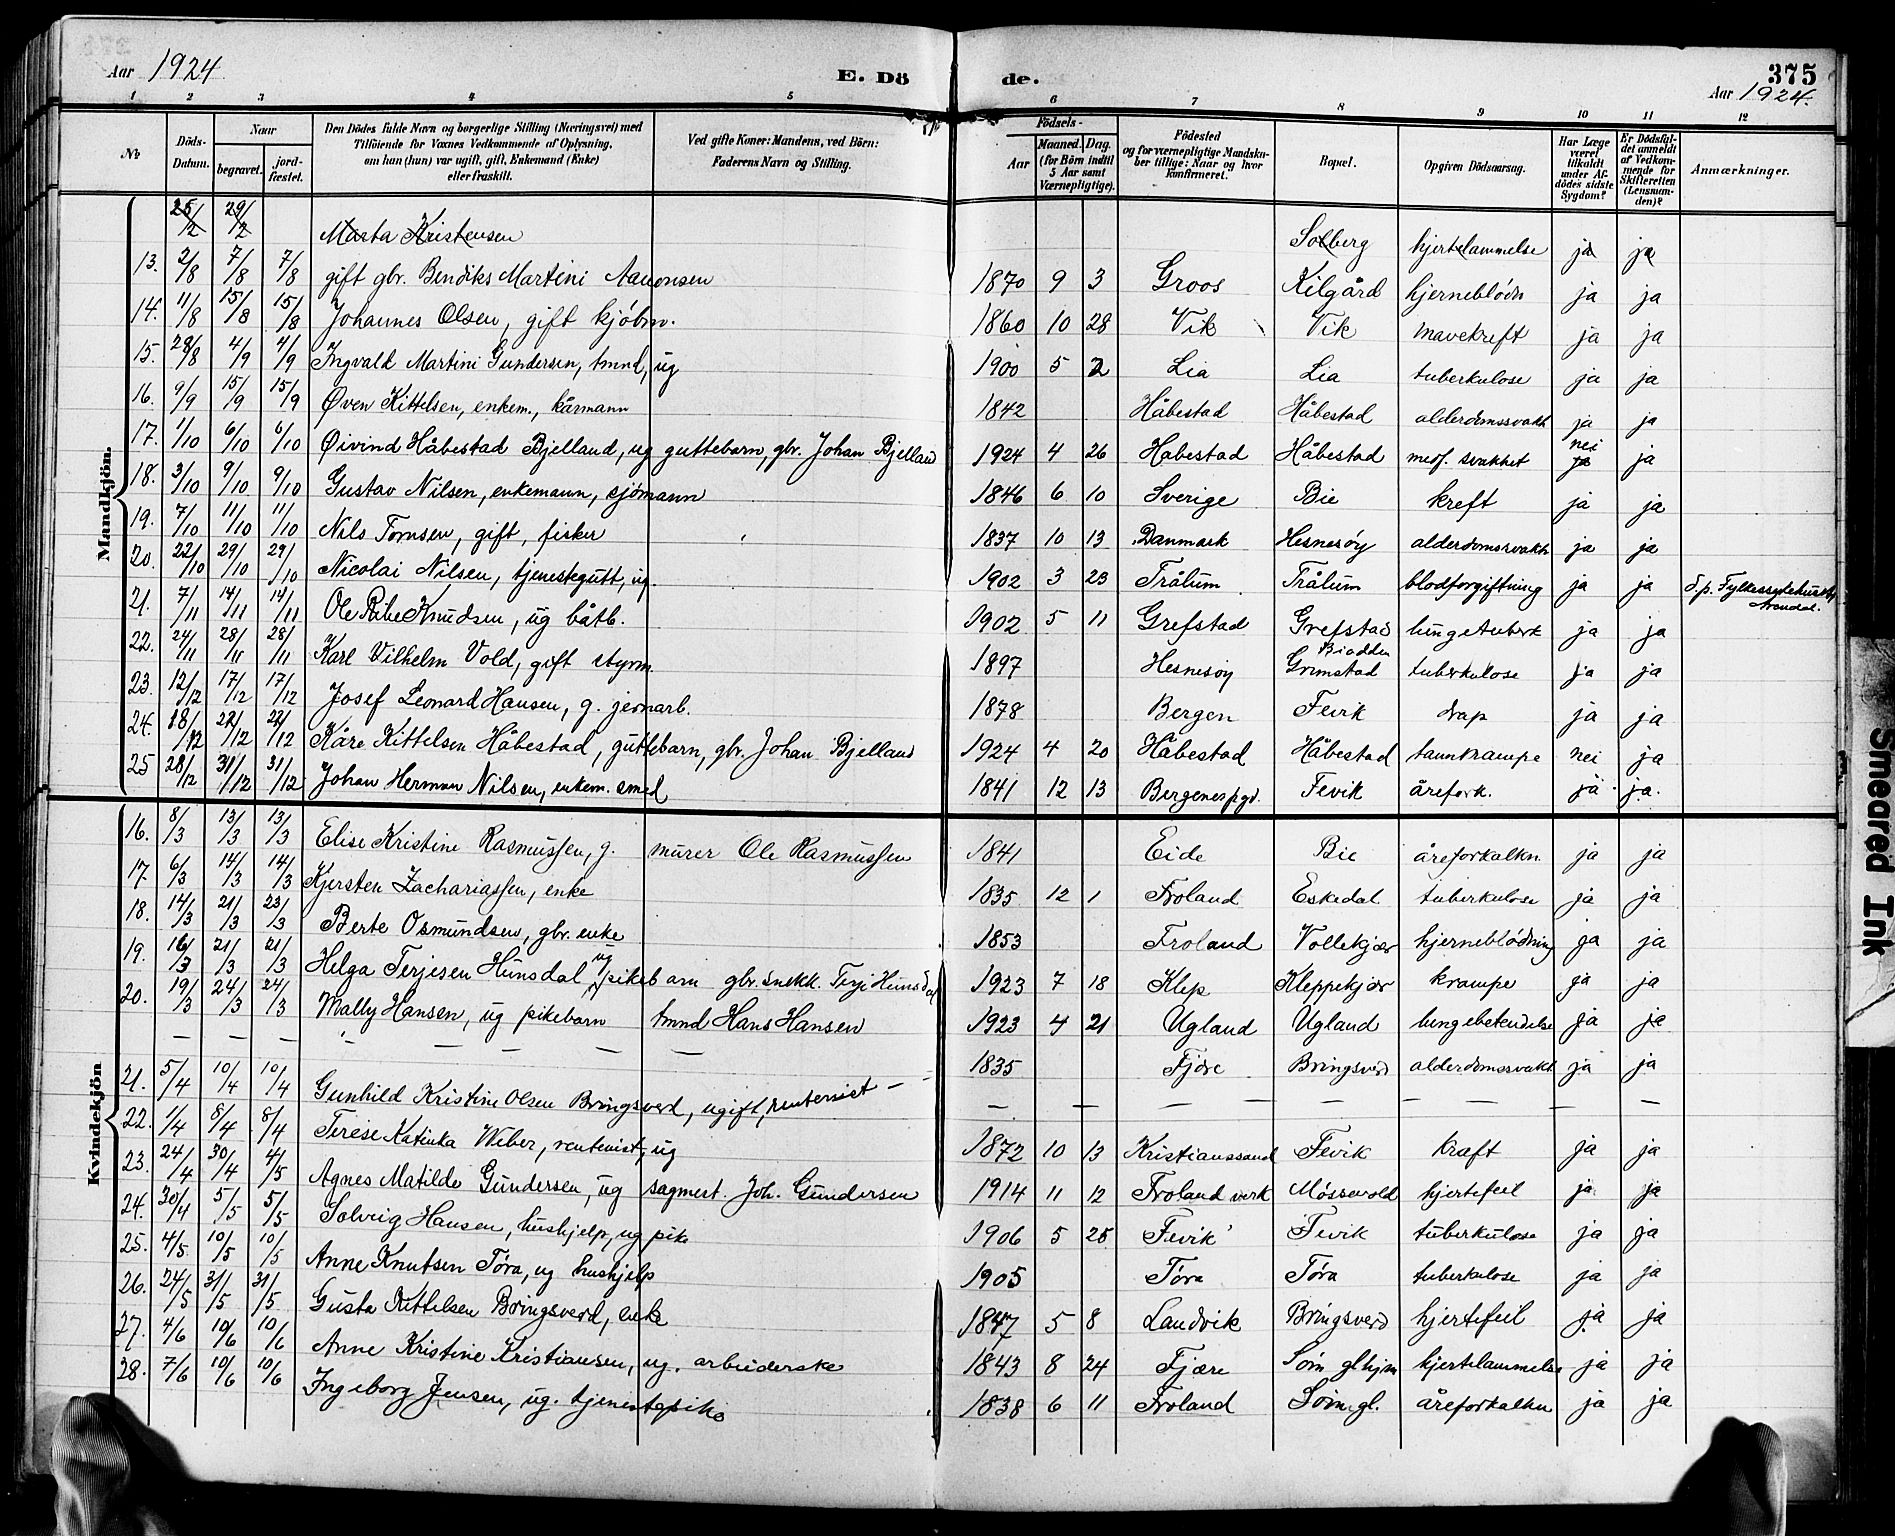 Aar 1924
E. Dö
de.
375
Aar 1924.
1 2 3 4 5 6 7 8 9 10 11 12
No
Döds-Datum.
Naar
begravet.
jord-fæstet.
Den Dödes fulde Navn og borgerlige Stilling (Næringsvei) med Tilföiende for Voxnes Vedkommende af Oplysning, om han (hun) var ugift, gift, Enkemand (Enke) eller fraskilt.
Ved gifte Koner: Mandens, ved Börn: Faderens Navn og Stilling.
Födsels-
Aar
Maaned. Dag.
(for Börn indtil 5 Aar samt Værnepligtige).
Födested og for værnepligtige Mandskaber tillige: Naar og hvor konfirmeret.
Bopæl.
Opgiven Dödsaarsag.
Har Læge været tilkaldt under Afdödes sidste Sygdom?
Er Dödsfaldet anmeldt af Vedkommende for Skifteretten (Lensmanden)?
Anmærkninger.
Mandkjön.
25/2 29/2 Marta Kristensen Solberg hjertelammelse ja ja
13. 2/8 7/8 7/8 gift gbr. Bendiks Martini Aanonsen 1870 9 3 Groos Kilgård hjerneblódn ja ja
14. 11/8 15/8 15/8 Johannes Olsen, gift kjøbm. 1860 10 28 Vik Vik mavekreft ja ja
15. 28/8 4/9 4/9 Ingvald Martini Gundersen, tmnd, ug 1900 5 2 Lia Lia tuberkulose ja ja
16. 9/9 15/9 15/9 Øven Kittelsen, enkem., kårmann 1842 Håbestad Håbestad alderdomssvakh ja ja
17. 1/10 6/10 6/10 Øivind Håbestad Bjelland, ug guttebarn, gbr. Johan Bjelland 1924 4 26 Håbestad Håbestad medf. svakhet nei ja ja
18. 3/10 9/10 9/10 Gustav Nilsen, enkemann, sjømann 1846 6 10 Sverige Bie kreft ja ja
19. 7/10 11/10 11/10 Nils Tornsen, gift, fisker 1837 10 13 Danmark Hesnesøy alderdomssvakh ja ja
20. 22/10 29/10 29/10 Nicolai Nilsen, tjenestegutt, ug. 1902 3 23 Trålum Trålum blodforgiftning ja ja d.p. Fylkessykehuset Arendal.
21. 7/11 14/11 14/11 Ole Ribe Knudsen, ug båtb. 1902 5 11 Grefstad Grefstad lungetuberk ja ja
22. 24/11 28/11 28/11 Karl Vilhelm Vold, gift styrm. 1897 Hesnesøy Grimstad tuberkulose ja ja
23. 12/12 17/12 17/12 Josef Leonard Hansen, g. jernarb. 1878 Bergen Fevik drap ja ja
24. 18/12 22/12 22/12 Kåre Kittelsen Håbestad, guttebarn, gbr. Johan Bjelland 1924 4 20 Håbestad Håbestad tannkrampe nei ja
25 28/12 31/12 31/12 Johan Herman Nilsen, enkem. smed 1841 12 13 Bergenes pgd. Fevik årefork. ja ja.
Kvindekjön
16. 8/3 13/3 13/3 Elise Kristine Rasmussen, g. murer Ole Rasmussen 1841 Eide Bie åreforkalkn. ja ja
17. 6/3 14/3 14/3 Kjersten Zachariassen, enke 1835 12 1 Froland Eskedal tuberkulose ja ja
18. 14/3 21/3 23/3 Berte Osmundsen, gbr. enke 1853 Froland Vollekjær hjerneblódning ja ja
19. 16/3 21/3 21/3 Helga Terjesen Hunsdal ug pikebarn gbr. snekk. Terje Hunsdal 1923 7 18 Klep Kleppekjær krampe ja ja
20. 19/3 24/3 24/3 Mally Hansen, ug pikebarn tmnd Hans Hansen 1923 4 21 Ugland Ugland lungebetendelse ja ja
21. 5/4 10/4 10/4 Gunhild Kristine Olsen Bringsverd, ugift, rentenist 1835 Fjære Bringsverd alderdomssvakh ja ja
22. 1/4 8/4 8/4 Terese Katinka Weber, rentenist, ug 1872 10 13 Kristianssand Fevik kræft ja ja
23. 24/4 30/4 4/5 Agnes Matilde Gundersen, ug sagmest. Joh. Gundersen 1914 11 12 Froland verk Móssevold hjertefeil ja ja
24. 30/4 5/5 5/5 Solveig Hansen, hushjelp, ug pike 1906 5 25 Fevik Fevik tuberkulose ja ja
25. 4/5 10/5 10/5 Anne Knutsen Tóra, ug hushjelp 1905 Tóra Tóra tuberkulose ja ja
26. 24/5 31/5 31/5 Gusta Kittelsen Bringsverd, enke 1847 5 8 Landvik Bringsverd hjertefeil ja ja
27. 4/6 10/6 10/6 Anne Kristine Kristiansen, ug. arbeiderske 1843 8 24 Fjære Sóm glhjm hjertelammelse ja ja
28. 7/6 10/6 10/6 Ingeborg Jensen, ug. tjenestepike 1838 6 11 Froland Sóm gl. åreforkalkn ja ja
Smeared Ink